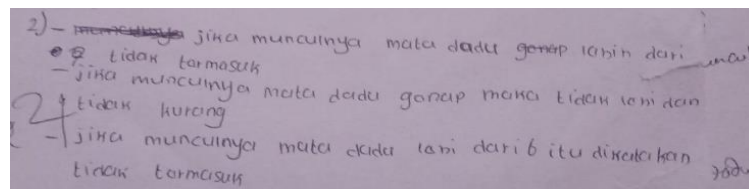 2) - jika munculnya mata dadu genap lanin dari
tidak tarmasuk
- jika munculnya mata dadu ganap maka tidak lani dan
tidak kurang
- jika munculnya mata dadu lani dari 6 itu dikatakan
tidak tarmasuk